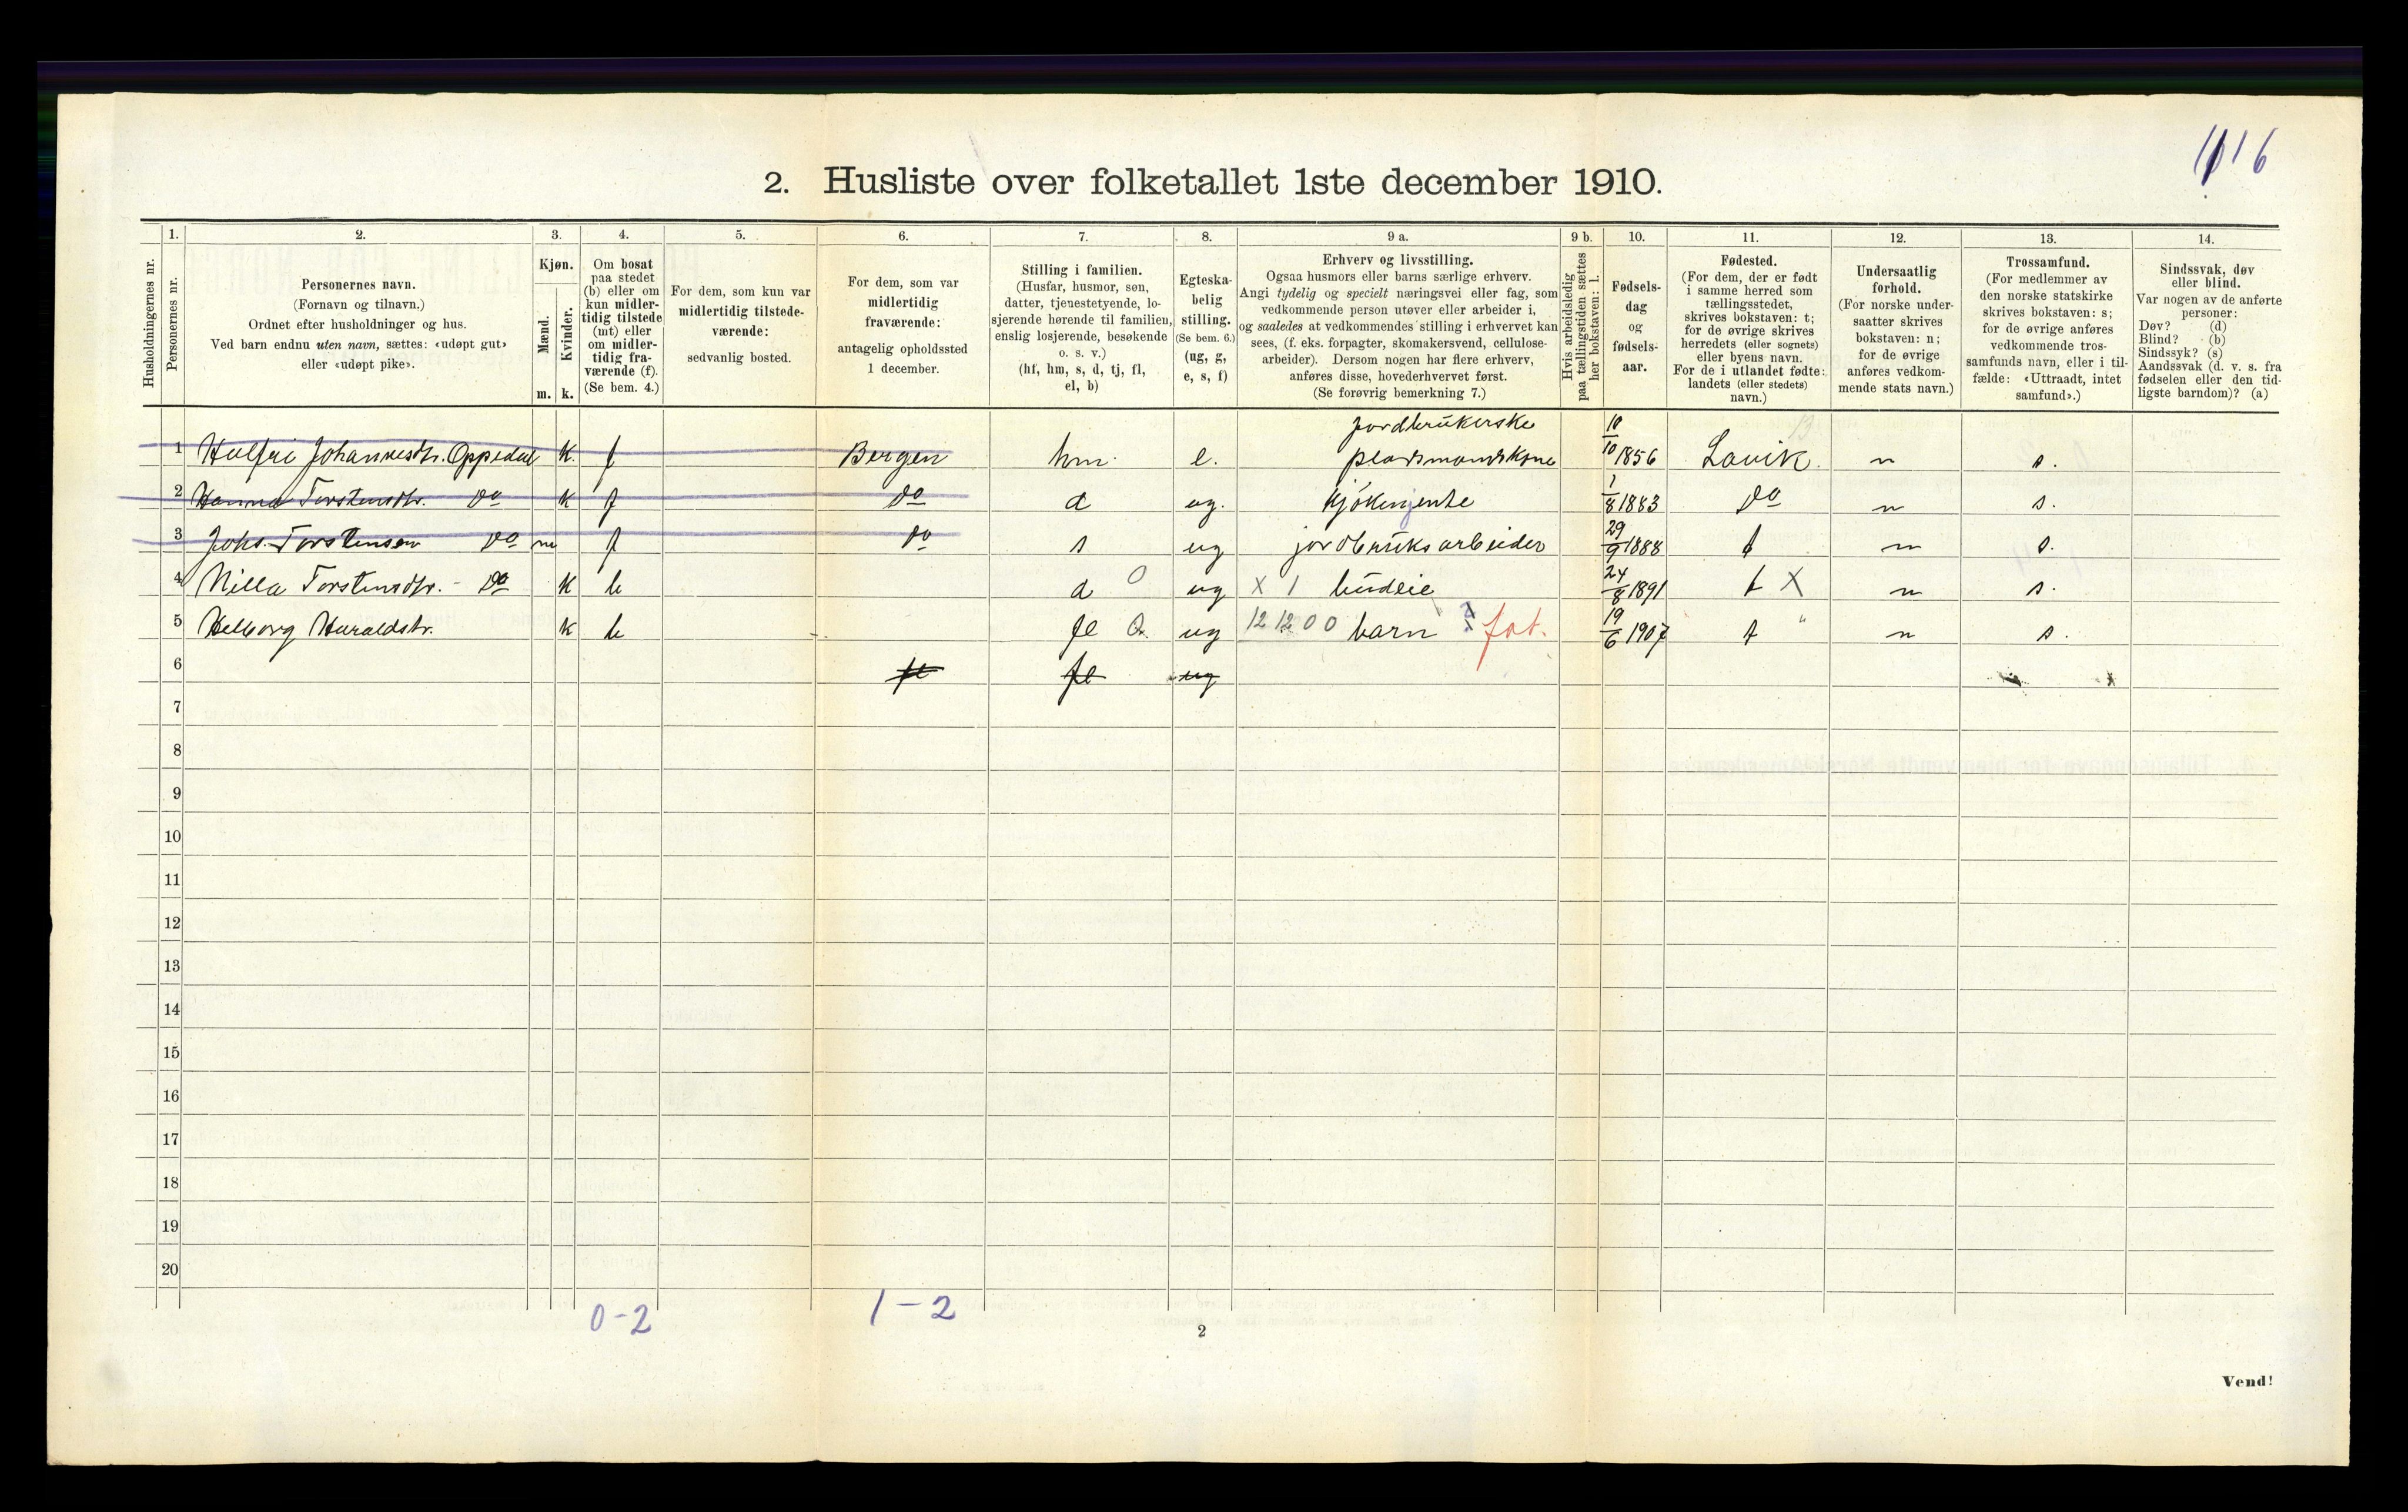 1116
2. Husliste over folketallet 1ste december 1910.
Husholdningernes nr.
1. Personernes nr.
2. Personernes navn.
(Fornavn og tilnavn.)
Ordnet efter husholdninger og hus.
Ved barn endnu uten navn, sættes: «udøpt gut»
eller «udøpt pike».
3. Kjøn.
Mænd. m.
Kvinder. k.
4. Om bosat
paa stedet
(b) eller om
kun midler-
tidig tilstede
(mt) eller
om midler-
tidig fra-
værende (f).
(Se bem. 4.)
5. For dem, som kun var
midlertidig tilstede-
værende:
sedvanlig bosted.
6. For dem, som var
midlertidig
fraværende:
antagelig opholdssted
1 december.
7. Stilling i familien.
(Husfar, husmor, søn,
datter, tjenestetyende, lo-
sjerende hørende til familien,
enslig losjerende, besøkende
o. s. v.)
(hf, hm, s, d, tj, fl,
el, b)
8. Egteska-
belig
stilling.
(Se bem. 6.)
(ug, g,
e, s, f)
9 a. Erhverv og livsstilling.
Ogsaa husmors eller barns særlige erhverv.
Angi tydelig og specielt næringsvei eller fag, som
vedkommende person utøver eller arbeider i,
og saaledes at vedkommendes stilling i erhvervet kan
sees, (f. eks. forpagter, skomakersvend, cellulose-
arbeider). Dersom nogen har flere erhverv,
anføres disse, hovederhvervet først.
(Se forøvrig bemerkning 7.)
9 b. Hvis arbeidsledig
paa tællingstiden sættes
her bokstaven: l.
10. Fødsels-
dag
og
fødsels-
aar.
11. Fødested.
(For dem, der er født
i samme herred som
tællingsstedet,
skrives bokstaven: t;
for de øvrige skrives
herredets (eller sognets)
eller byens navn.
For de i utlandet fødte:
landets (eller stedets)
navn.)
12. Undersaatlig
forhold.
(For norske under-
saatter skrives
bokstaven: n;
for de øvrige
anføres vedkom-
mende stats navn.)
13. Trossamfund.
(For medlemmer av
den norske statskirke
skrives bokstaven: s;
for de øvrige anføres
vedkommende tros-
samfunds navn, eller i til-
fælde: «Uttraadt, intet
samfund».)
14. Sindssvak, døv
eller blind.
Var nogen av de anførte
personer:
Døv? (d)
Blind? (b)
Sindssyk? (s)
Aandssvak (d. v. s. fra
fødselen eller den tid-
ligste barndom)? (a)
Jordbrukerske
1 Johannesdtr. Oppedal k. f Bergen hm. e. pladsmandskone 10/10 1856 Lavik. n s.
2 Hanna Torstensdtr. do k f do d ug. kjøkenjente 1/8 1883 do n s.
3 Johs. Torstensen do m f do s ug jordbruksarbeider 29/9 1888 t n s.
4 Nilla Torstensdtr. - do k b d 0 ug X 1 budeie 24/8 1891 t X n s.
5 Haraldstr. k b fl ug 12 12 0 0 barn fat. 19/6 1907 t " n s.
6 fl fl ug
7
8
9
10
11
12
13
14
15
16
17
18
19
20
0-2 1-2
2
Vend!